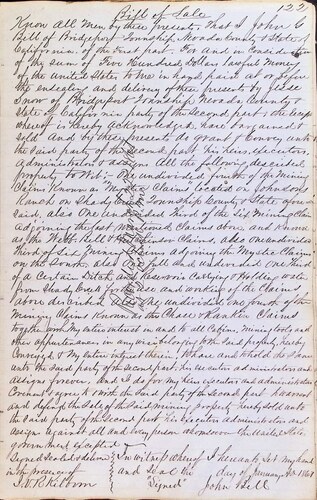 Bill of Sale 122
Know All Men by these presents That I John C
Bell of Bridgeport Township Nevada County & State of
California of the first part. For and in Consideration
of the sum of Five Hundred Dollars lawful Money
of the United States to me in hand paid at or before
the ensealing and delivery of these presents by Jesse
Snow of Bridgeport Township Nevada County &
State of California party of the second part the receipt
whereof is hereby Acknowledged, have bargained &
Sold And by these presents do Grant & Convey unto
the said party of the second part his heirs, Executors,
Administrators & Assigns All the following described
property to Wit; One undivided fourth of the Mining
Claims Known as "Mystic Claims" located on Johnsons
Ranch on Shady Creek Township County & State aforesaid
said, also One Undivided third of the Six Mining Claims
Adjoining the last mentioned Claims above and Known
as the Webb Bell & Claims, also One undivided
third of Claims adjoining the Mystic Claims
on the South, also One half undivided
of a Certain Ditch and Reservoir Carrying & Holding water
from Shady Creek for the use and working of the Claims
above described, also One undivided one fourth of the
Mining Claims Known as the Chase & Rankin Claims
together with My entire interest in and to all Cabins, Mining tools and
other appurtenances in any wise belonging to the said property hereby
Conveyed & My entire interest therein. To have and to hold the Same
unto the said party of the second part, his Executors administrators and
Assigns forever, and I do for My heirs executors and administrators
Covenant & agree to & with the said party of the second part to warrant
and defend the Sale of the said mining property hereby sold unto
the said party of the second part his Executors administrators and
Assigns against all and every person whomsoever the United States
Government excepted
Signed Sealed & delivered In Witness Whereof I hereunto set My hand
in the presence of and Seal the day of January AD 1861
"Signed" John Bell